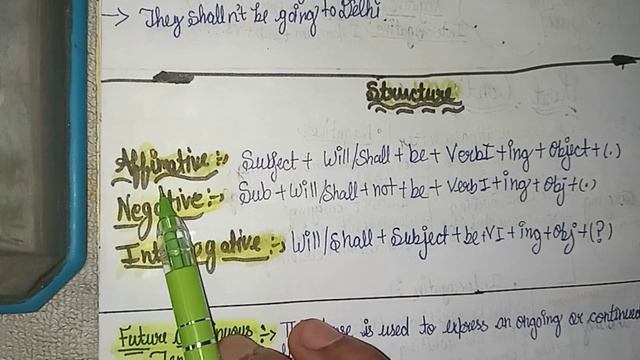 → They shalln't be going to Delhi.
Structure
Affirmative :- Subject + Will/Shall + be + Verb I + ing + Object + (.)
Negative :- Sub + Will/Shall + not + be + Verb I + ing + Obj + (.)
Interrogative :- Will/Shall + Subject + be + V I + ing + Obj + (?)
Future :- is used to express an ongoing or continued